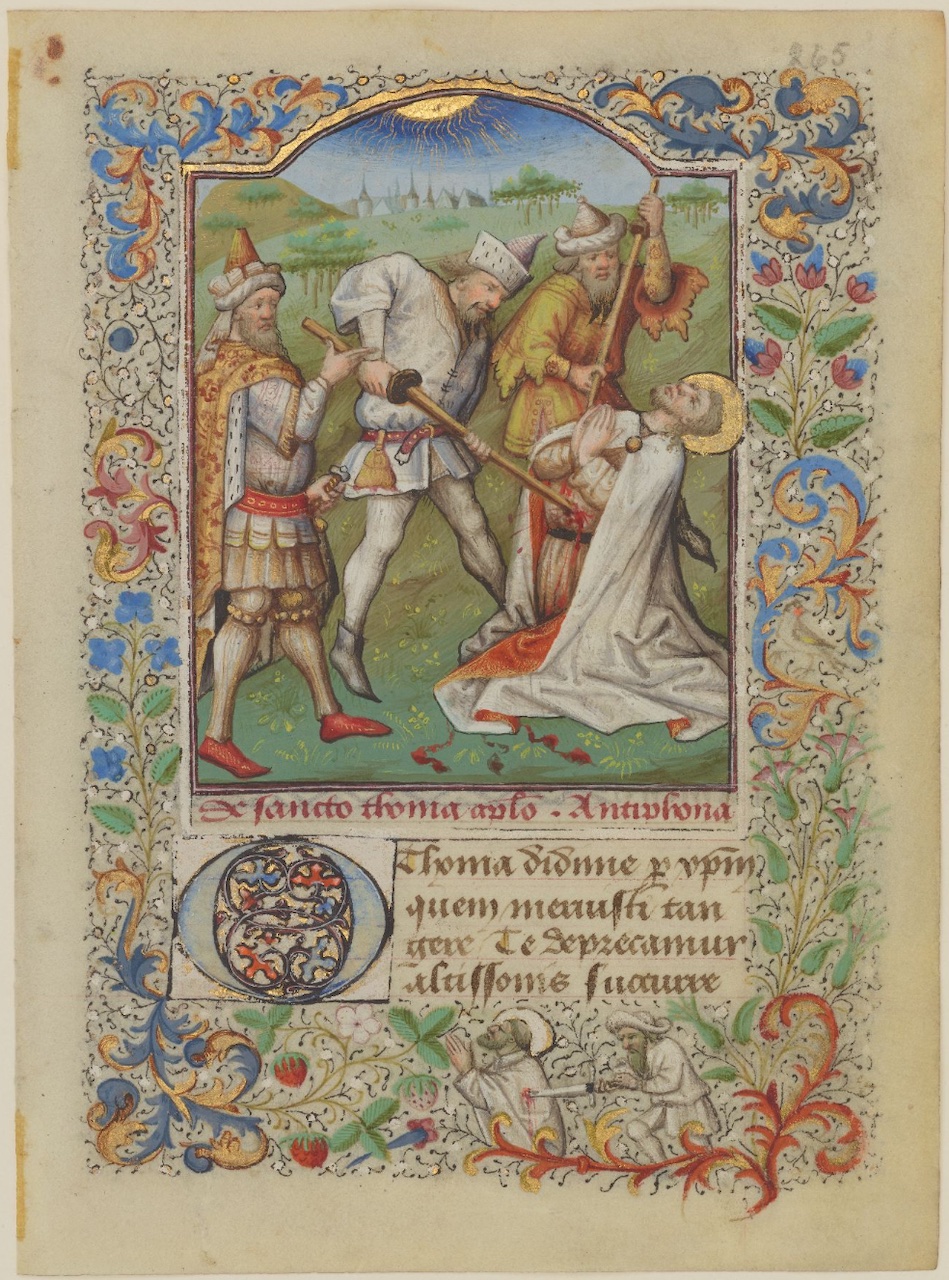 265
De sancto thoma aplo . Antiphona
O Thoma didime ꝑ xp̄m
quem meruisti tan
gere Te deprecamur
altissonis succurre